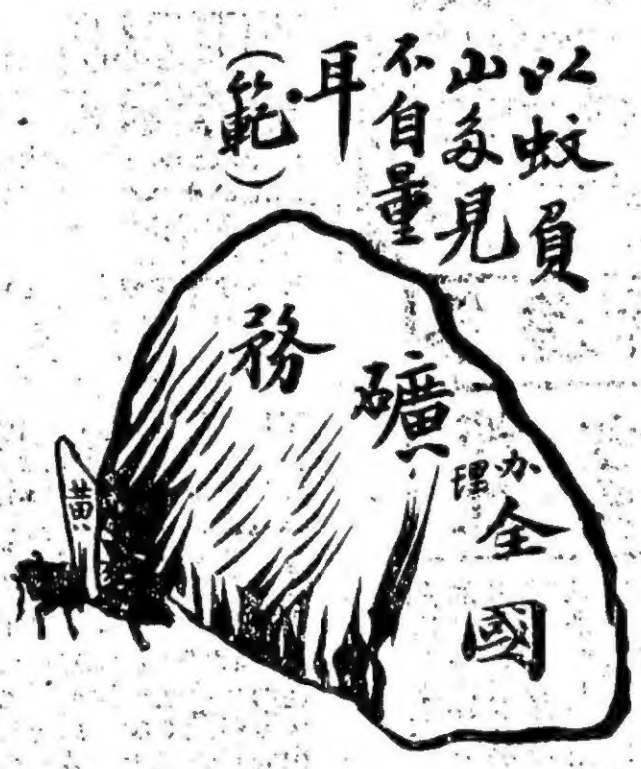 以蚊負
山多見
不自量
耳
(範)
办理
全國
礦
務
黃